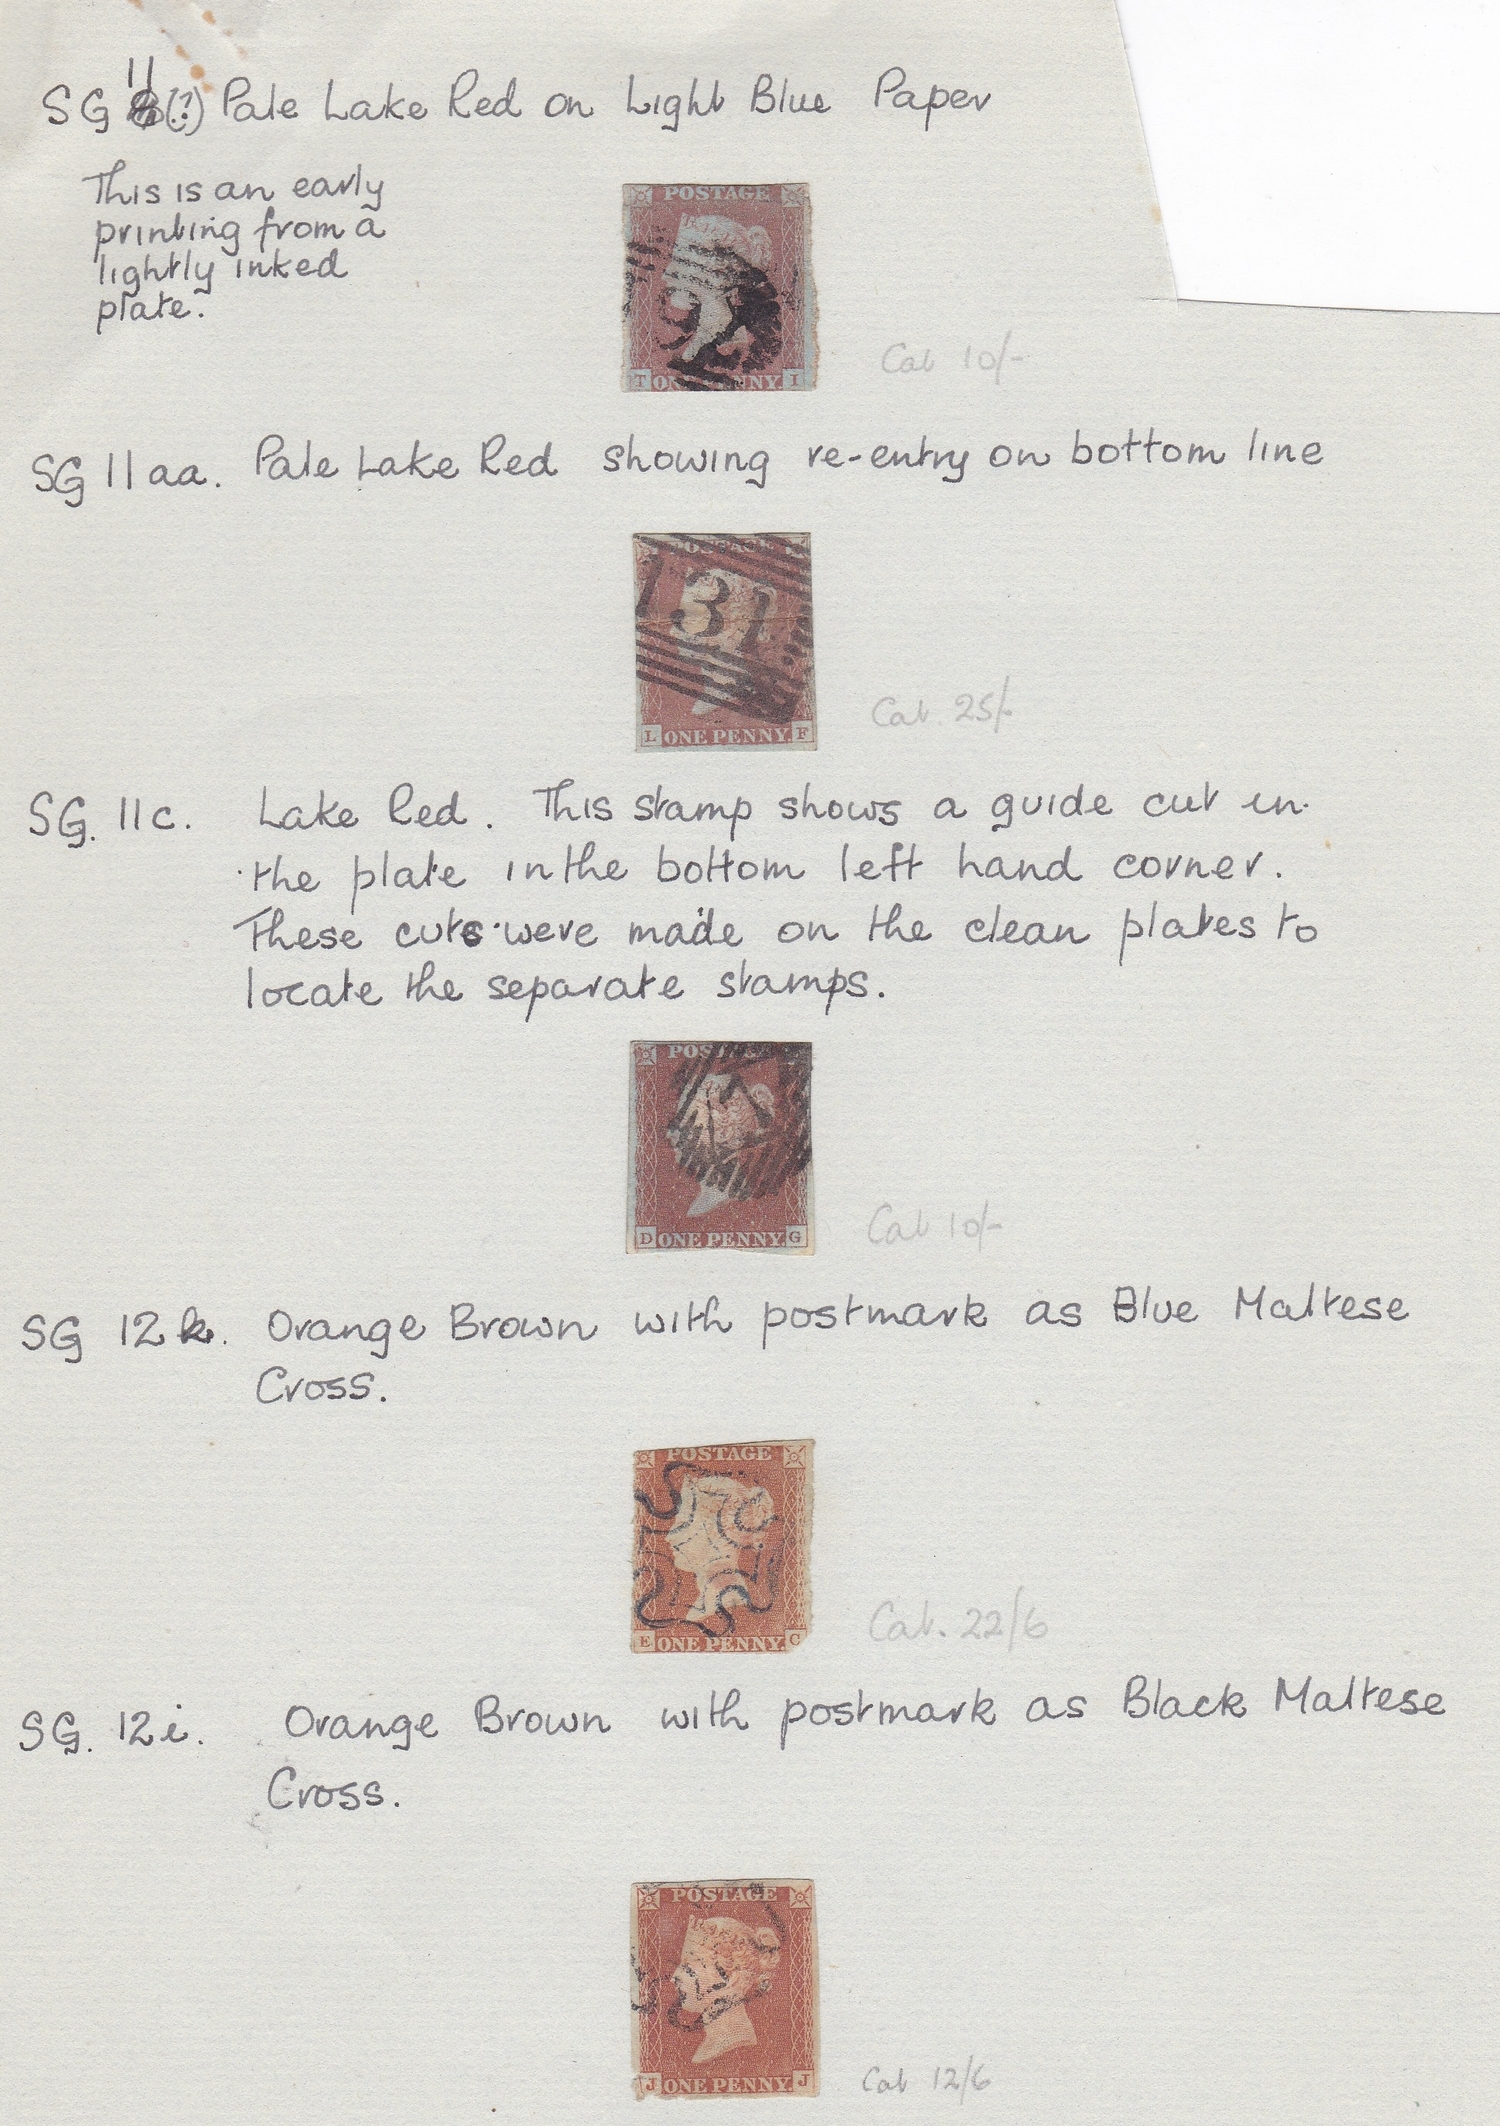 SG 11 (?) Pale Lake Red on Light Blue Paper
This is an early
printing from a
lightly inked
plate.
POSTAGE
92
T ONE PENNY. I
Cat 10/-
SG 11 aa. Pale Lake Red showing re-entry on bottom line
POSTAGE
131
L ONE PENNY. F
Cat. 25/-
SG. 11c. Lake Red. This stamp shows a guide cut in
the plate in the bottom left hand corner.
These cuts were made on the clean plates to
locate the separate stamps.
POSTAGE
D ONE PENNY. G
Cat 10/-
SG 12 k. Orange Brown with postmark as Blue Maltese
Cross.
POSTAGE
E ONE PENNY. C
Cat. 22/6
SG. 12 i. Orange Brown with postmark as Black Maltese
Cross.
POSTAGE
J ONE PENNY. J
Cat 12/6